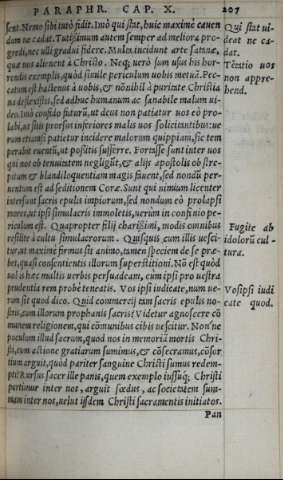 PARAPHR. CAP. X. 207
sent. Nemo sibi iuto fidit. Imò qui stat, huic maximè cauen
dum ne cadat. Tutissimum autem semper ad meliora pro-
gredi, nec ulli gradui fidere. Mulex incidunt arte satanæ,
quæ nos alienent à Christo. Neq; uerò sum usus his hor-
rendis exemplis, quòd simile periculum uobis metuā. Pec-
catum est hactenus à uobis, & nōnihil à puritate Christia
na deflexistis, sed adhuc humanum ac sanabile malum ui-
deo. Imò confido futurū, ut deus non patiatur uos eò pro-
labi, ut siui prorsus inferiores malis uos solicitantibus: ue
rum etiamsi patietur incidere malorum quippiam, sic tem
perabit euentū, ut possitis sufferre. Fortasse sunt inter uos
qui nos ob tenuitatem negligūt, & alijs apostolis ob stre-
pitum & blandiloquentiam magis fauent, sed nondū per-
uentum est ad seditionem Coræ. Sunt qui nimium licenter
intersunt sacris epulis impiorum, sed nondum eò prolapsi
mores, ut ipsi simulacris immoletis, uerùm in confinio pe-
riculum est. Quapropter filij charissimi, modis omnibus
resilite à cultu simulacrorum. Quisquis cum illis uesci-
tur, ut maximè firmus sit animo, tamen speciem de se præ-
bet, quasi consentientis illorum superstitioni. Nō est quòd
uobis hæc multis uerbis persuadeam, cum ipsi pro uestra
prudentia rem probè teneatis. Vos ipsi iudicate, num ue-
rum sit quod dico. Quid commercij tum sacris epulis no-
stris, cum illorum prophanis sacris? Videtur agnoscere cō
munem religionem, qui cōmunibus cibis uescitur. Non ne
poculum illud sacrum, quod nos in memoriā mortis Chri-
sti, cum actione gratiarum sumimus, & cōsecramus, cōsor
tium arguit, quod pariter sanguine Christi sumus redem-
pti? Rursus sacer ille panis, quem exemplo iussuq; Christi
partimur inter nos, arguit fœdus, ac societatem sum-
mam inter nos, uelut ijsdem Christi sacramentis initiatos.
Pan
Qui stat ui-
deat ne ca-
dat.
Tētatio uos
non appre-
hend.
Fugite ab
idolorū cul-
tura.
Vosipsi iudi
cate quod.